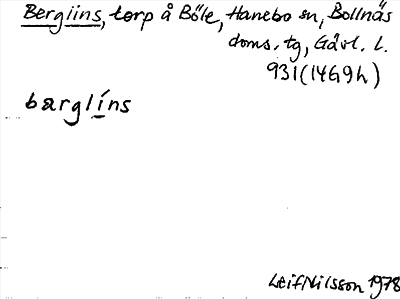 Bergiins, torp å Böle, Hanebo sn, Bollnäs
doms. tg, Gävl. l.
931 (14G9h)
barglíns
Leif Nilsson 1978